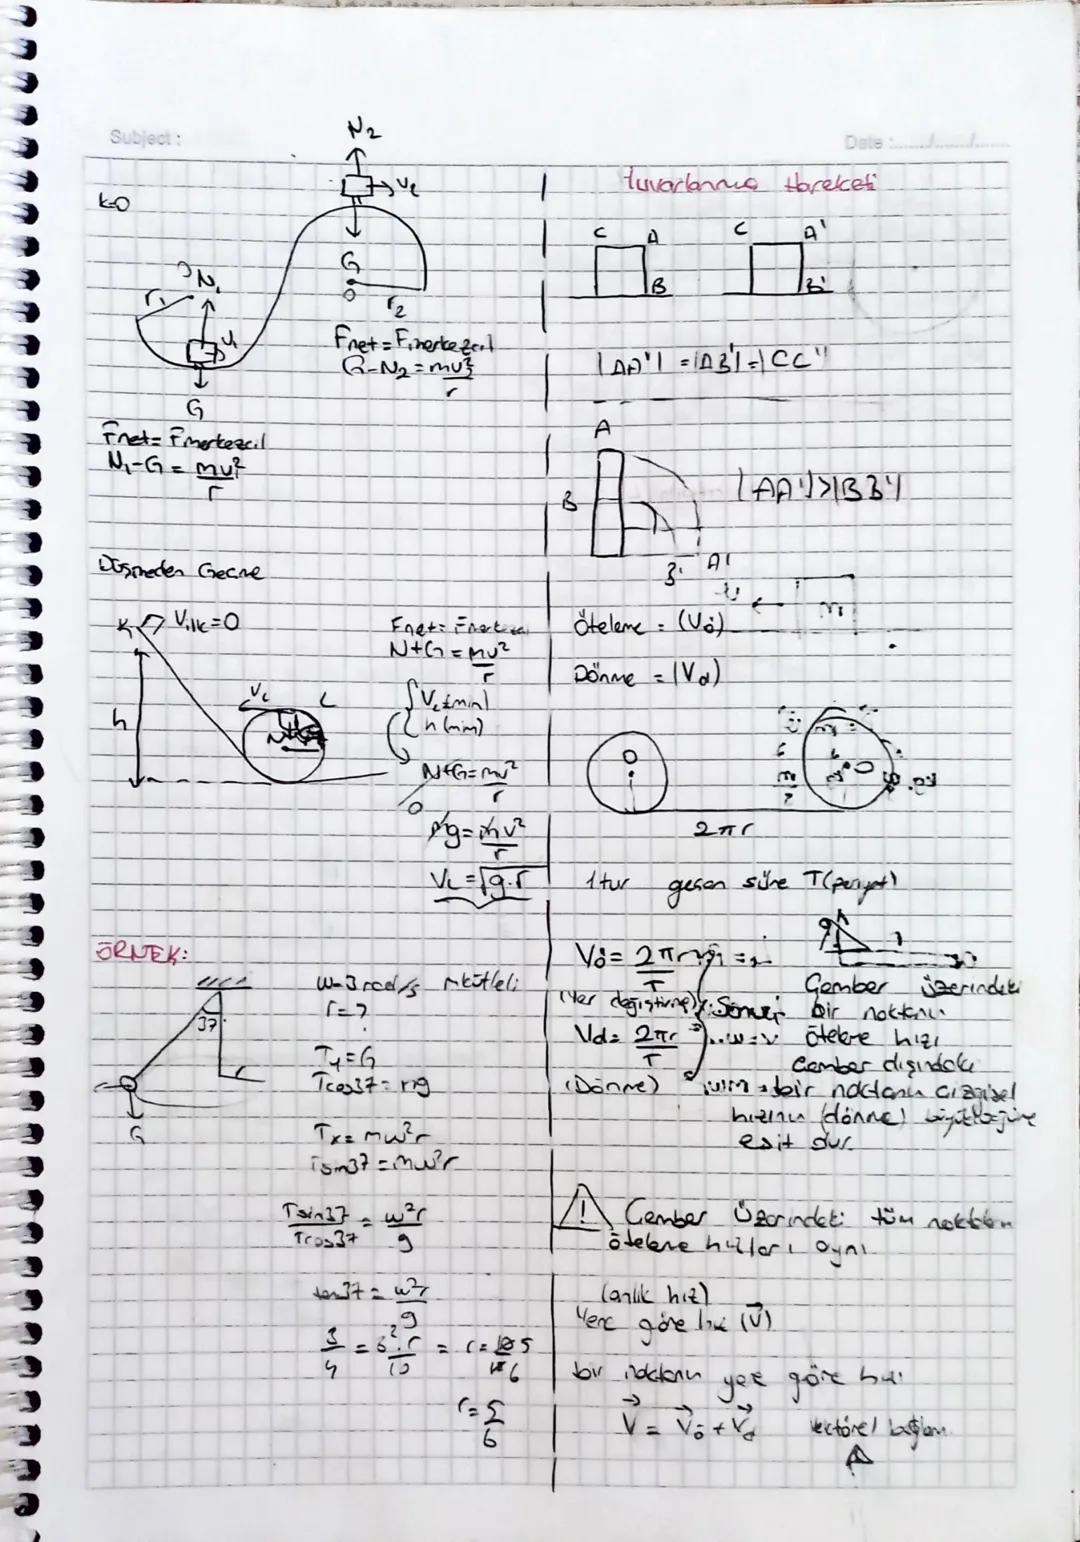 Subject :
Date :
N2
V2
k=0
G
O
r2
r1
N1
V1
G
Fnet = Fmerkezcil
G-N2 = mv²
r
Fnet = Fmerkezcil
N1-G = mv²
r
Düşmeden Geçme
K
Vilk=0
h
VL
L
N+G
N+G = mv²
r
VL (min)
h (min)
N+G = mv²
r
O
mg = mv²
r
VL = √g.r
ÖRNEK:
37
r
G
W=3 rad/s m kütleli
r=?
Ty=G
Tcos37 = mg
Tx = mw²r
Tsin37 = mw²r
Tsin37 = w²r
Tcos37 g
tan37 = w²r
g
3
4
10
r = 5
6
Yuvarlanma Hareketi
C A C A'
B B'
|AA'|
A
B
|AA'|>|BB'|
B' A'
Öteleme = (Vö)
Dönme = (Vd)
O
2πr
1 tur geçen süre T(periyot)
Vö = 2πr
T
(Yer değiştirme)
Vd = 2πr
T
(Dönme)
Çember üzerindeki
bir noktanın
öteleme hızı
çember dışındaki
bir noktanın çizgisel
hızının (dönme) büyüklüğüne
eşit dur.
! Çember üzerindeki tüm noktaların
öteleme hızları aynı
(anlık hız)
Yere göre hız (V)
bir noktanın yere göre hızı
V = Vö + Vd vektörel toplam